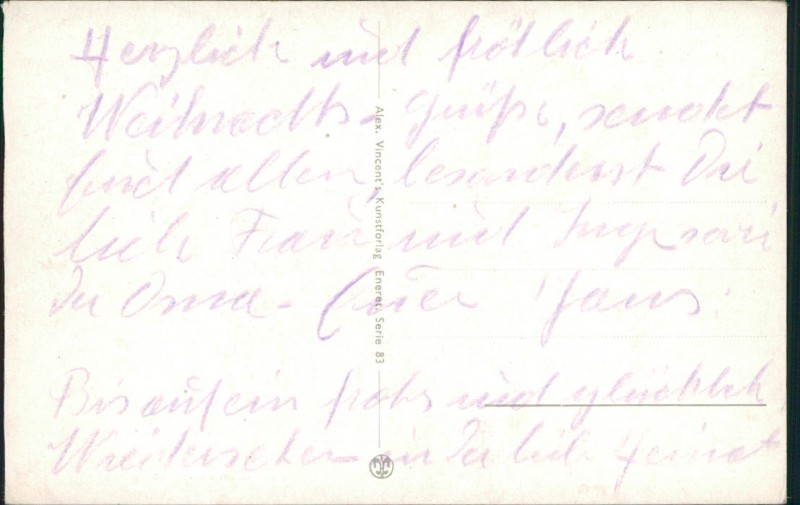 Herzlich und frölich
Weihnachts-Grüße, sendet
Euch allen, besonderst Dir
liebe Frau und
der Oma - Euer Hans.
Bis auf ein frohes und glücklich
Wiedersehen in der lieb Heimat
Alex. Vincent's Kunstforlag Eneret Serie 83